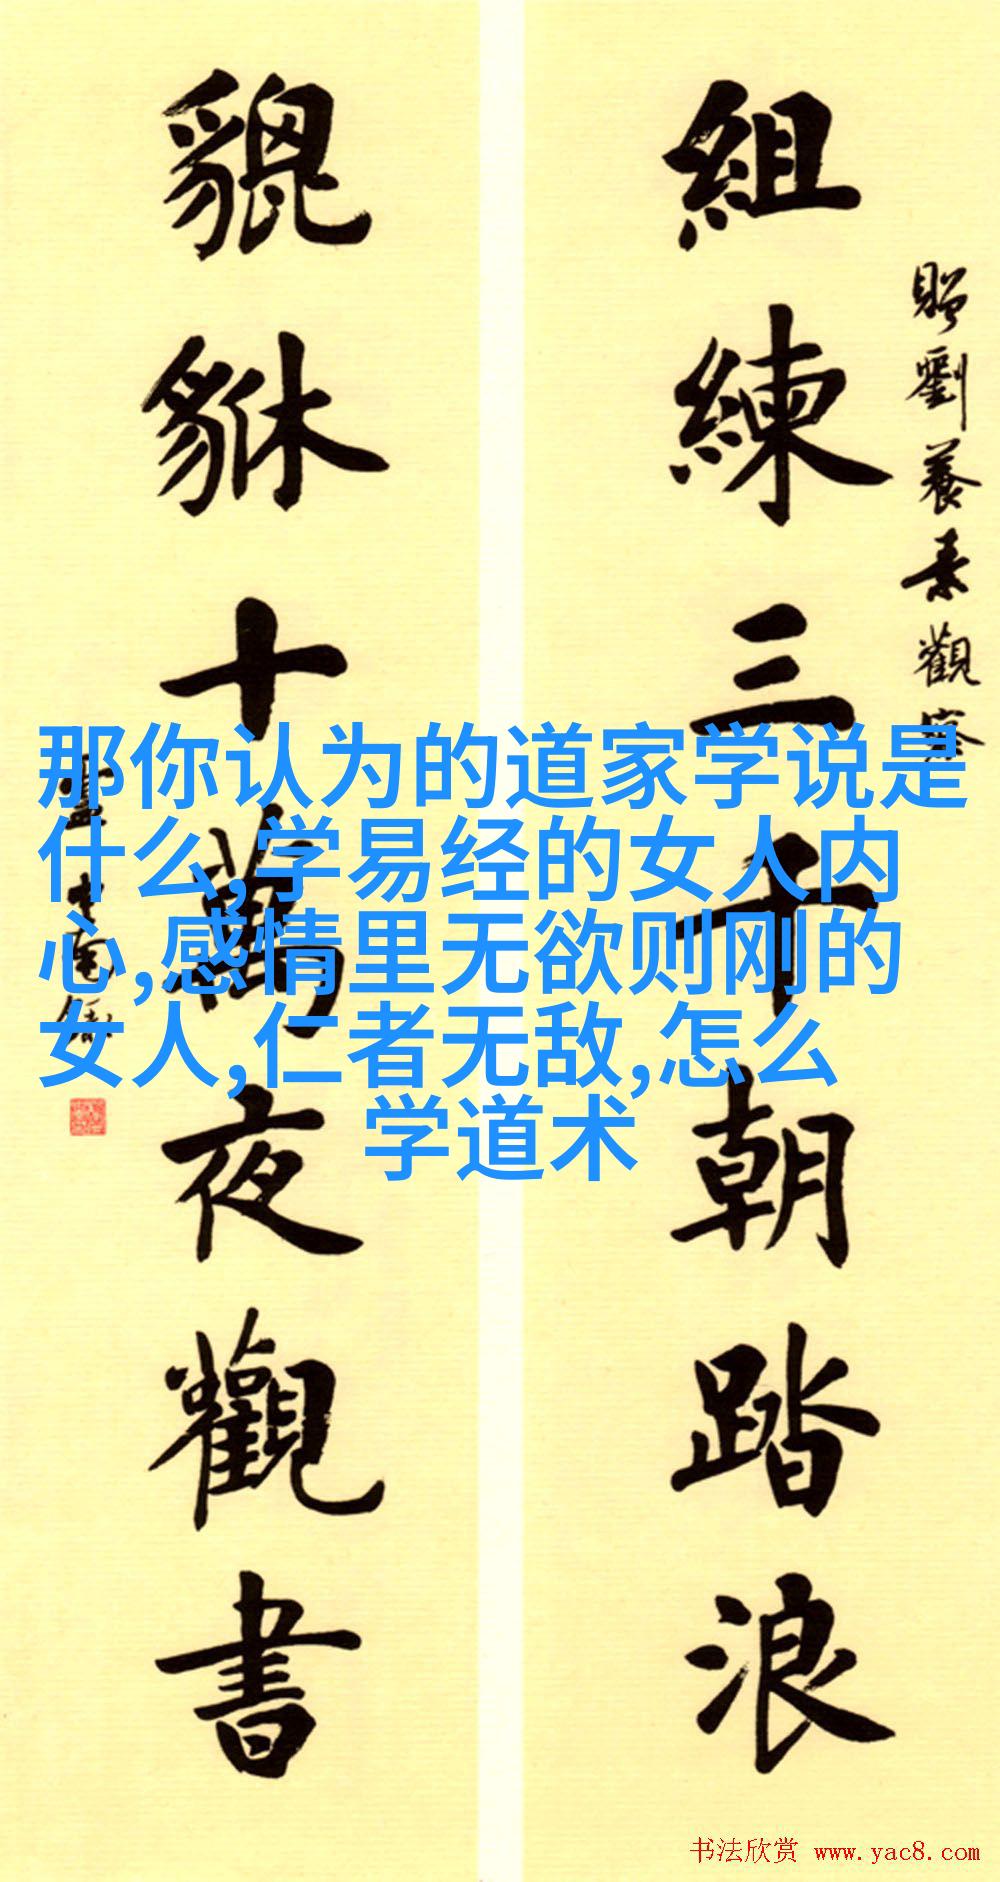 組練三千朝踏浪
貔貅十萬夜觀書
贈劉養素觀察
那你认为的道家学说是
什么,学易经的女人内
心,感情里无欲则刚的
女人,仁者无敌,怎么
学道术
书法欣赏 www.yac8.com